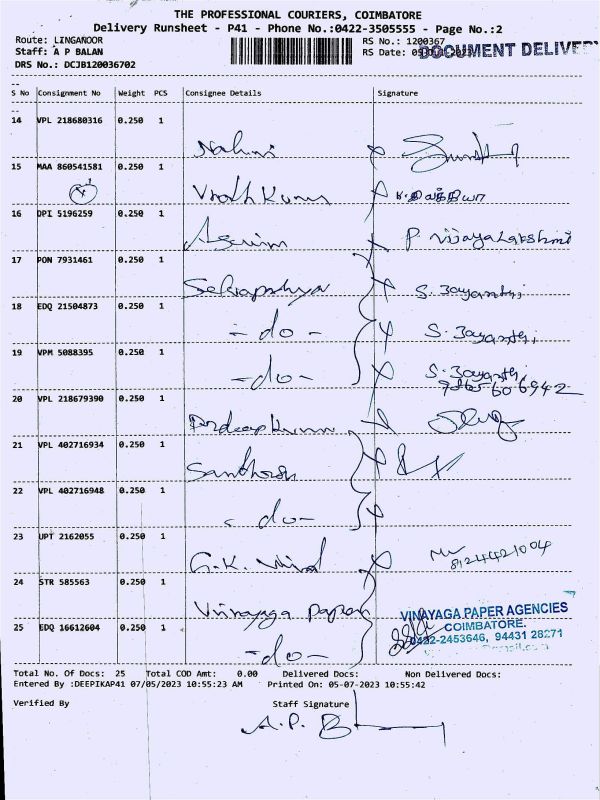 THE PROFESSIONAL COURIERS, COIMBATORE
Delivery Runsheet - P41 - Phone No.:0422-3505555 - Page No.:2
Route: LINGANOOR RS No.: 1200367
Staff: A P BALAN RS Date: DOCUMENT DELIVER
DRS No.: DCJB120036702
S No Consignment No Weight PCS Consignee Details Signature
14 VPL 218680316 0.250 1
15 MAA 860541581 0.250 1
16 DPI 5196259 0.250 1
P. Vijayalakshmi
17 PON 7931461 0.250 1
S. Jayanthi
18 EDQ 21504873 0.250 1
- do - S. Jayanthi
19 VPM 5088395 0.250 1
- do - S. Jayanthi
20 VPL 218679390 0.250 1
21 VPL 402716934 0.250 1
Santhosh
22 VPL 402716948 0.250 1
- do -
23 UPT 2162055 0.250 1
G.K.
8124421004
24 STR 585563 0.250 1
Vinayaga Paper VINAYAGA PAPER AGENCIES
25 EDQ 16612604 0.250 1 COIMBATORE.
0422-2453646, 94431 28271
- do -
Total No. Of Docs: 25 Total COD Amt: 0.00 Delivered Docs: Non Delivered Docs:
Entered By :DEEPIKAP41 07/05/2023 10:55:23 AM Printed On: 05-07-2023 10:55:42
Verified By Staff Signature
A.P. B